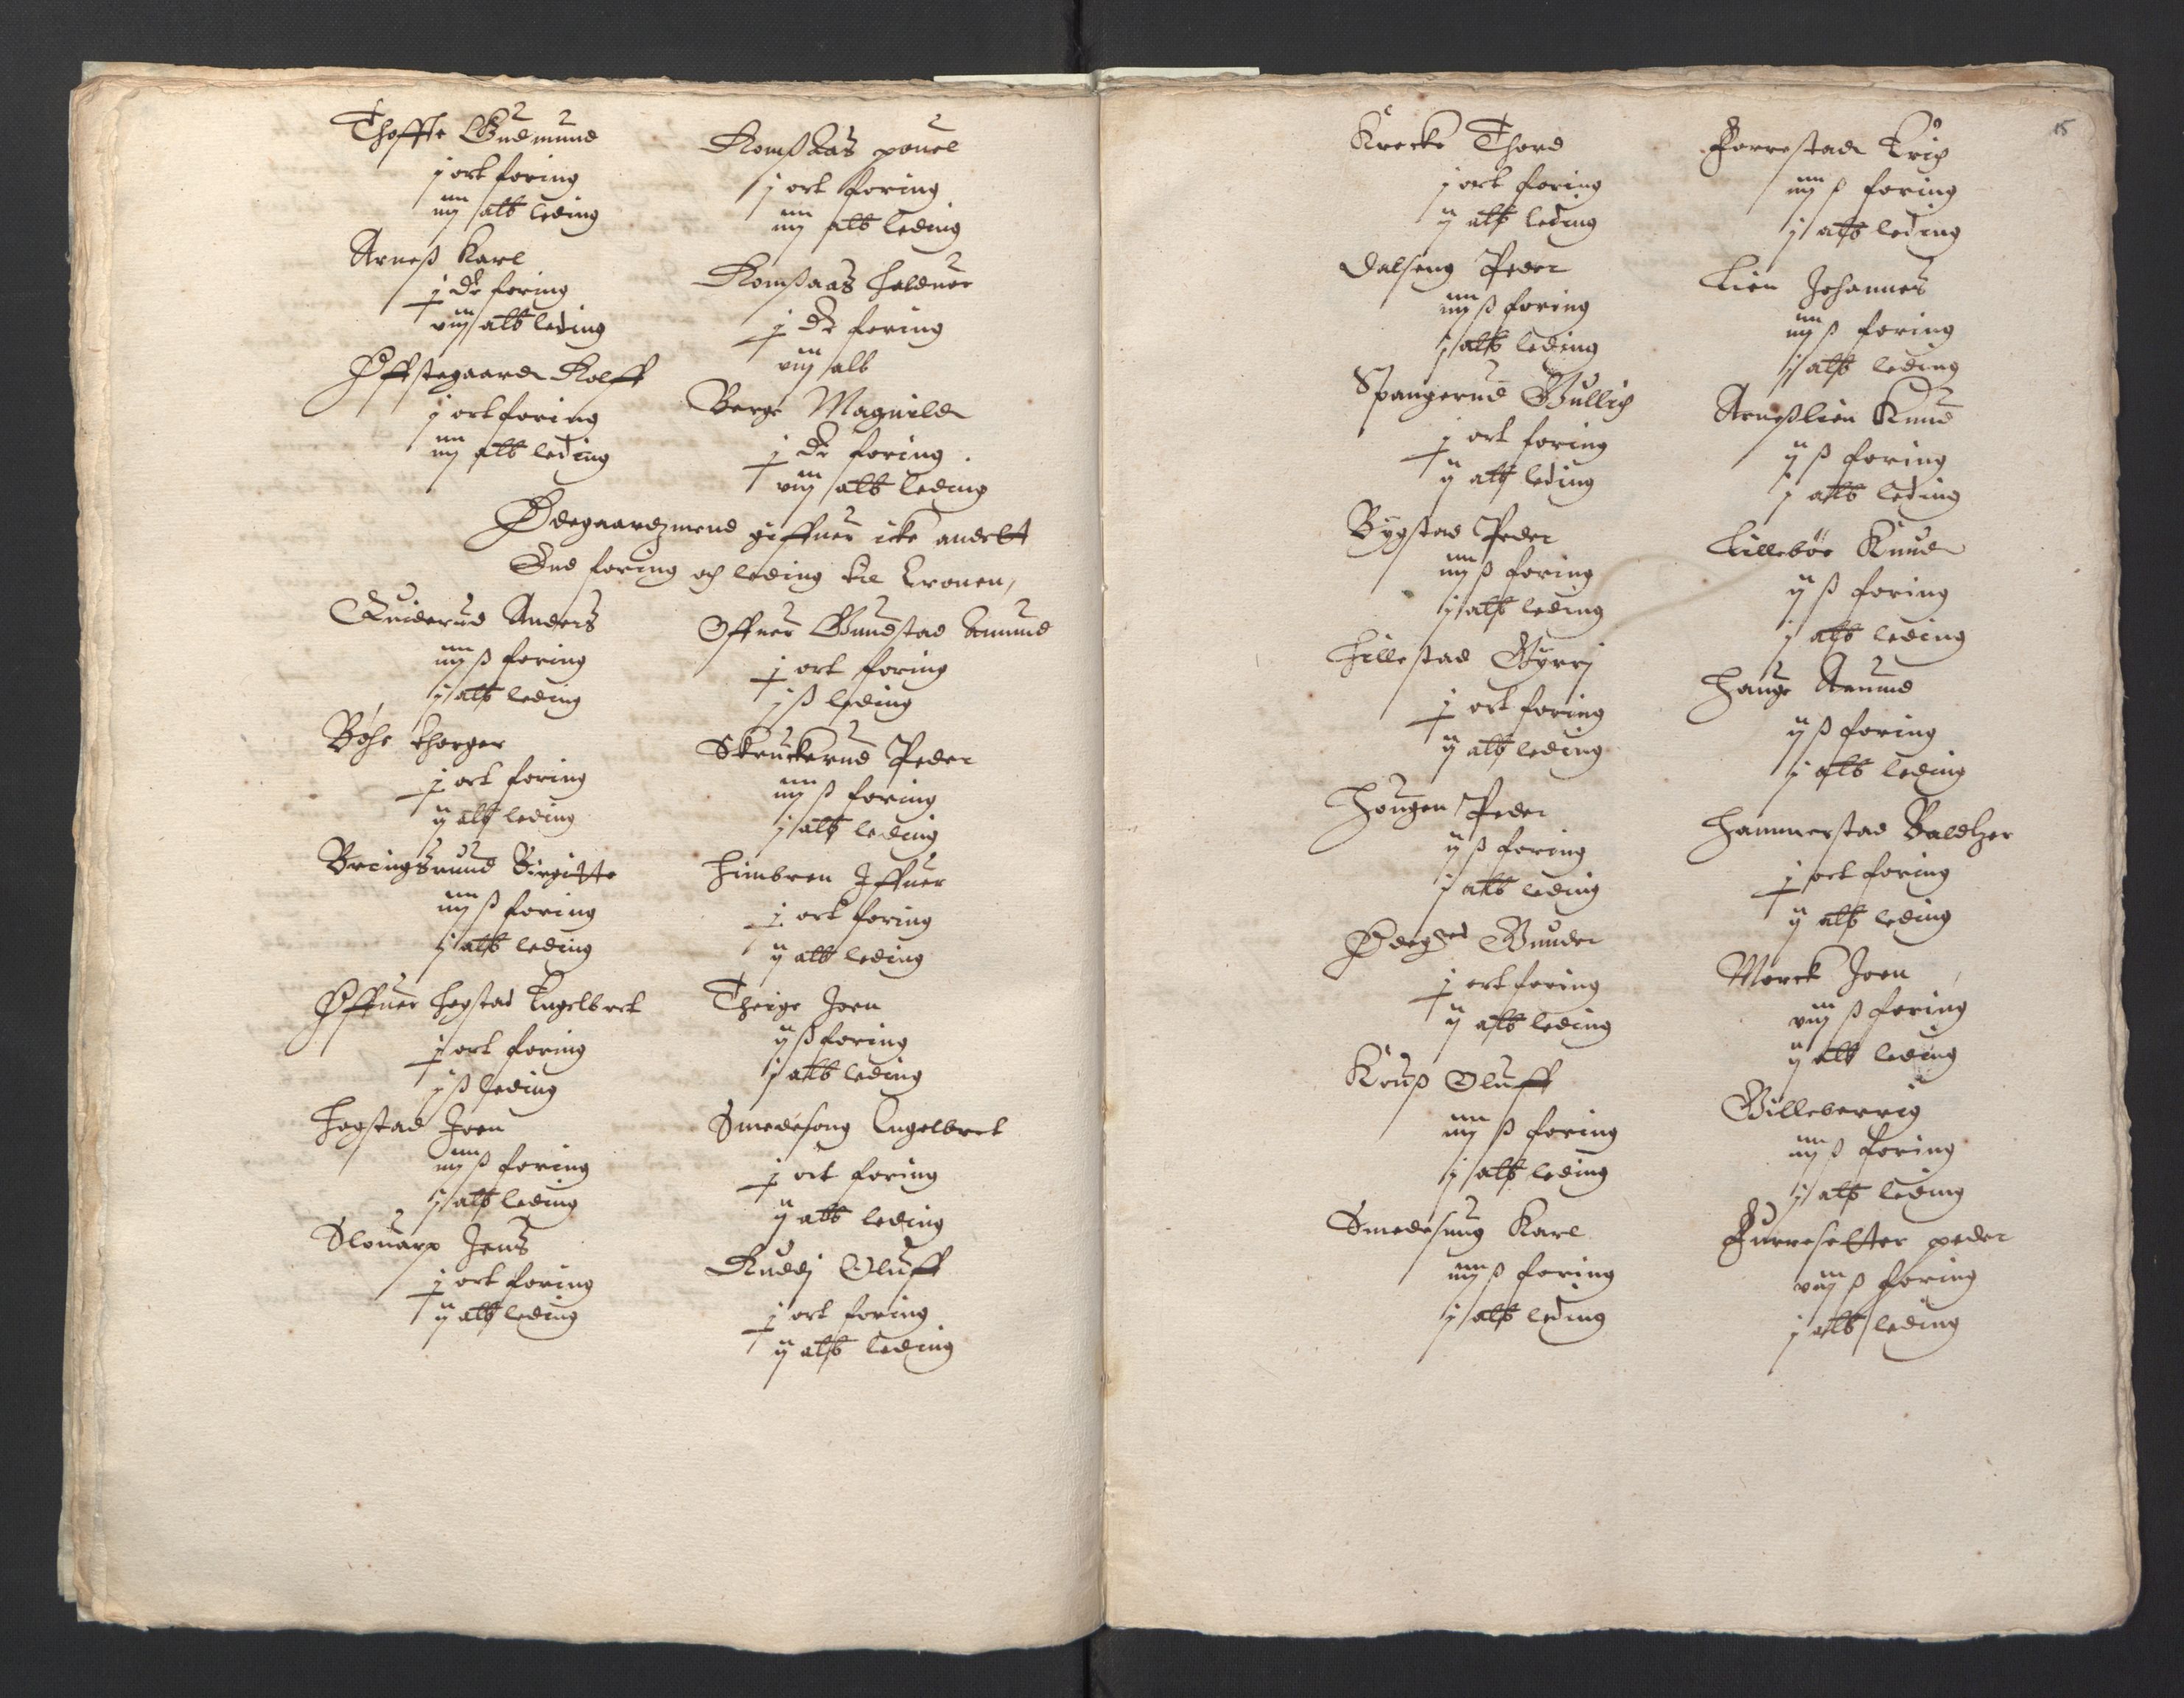 Thoffte Gudmund
j ort foring
iiij alb leding
Arneß Karl
j dr foring
viij alb leding
Øffstegaard Rolff
j ort foring
iiij alb leding
Romßaas povel
j ort foring
iiij alb leding
Romsaas Halduor
j dr foring
viij alb
Berge Magnild
j dr foring
viij alb leding
Ødegaardzmend giffuer icke andett
End foring och leding til Cronen,
Quiderud Anders
iiij ß foring
j alb leding
Bøhe Thorger
j ort foring
ij alb leding
Bringsruud Birgitte
iiij ß foring
j alb leding
Øffuer Hogstad Engelbret
j ort foring
j ß leding
Hogstad Joen
iiij ß foring
j alb leding
Jens
j ort foring
ij alb leding
Offuer Gundstad Amund
j ort foring
j ß leding
Skruckerud Peder
iiij ß foring
j alb leding
Himbren Iffuer
j ort foring
ij alb leding
Theige Joen
ij ß foring
j alb leding
Smedesong Engelbret
j ort foring
ij alb leding
Ruddj Oluff
j ort foring
ij alb leding
15
Krecke Thord
j ort foring
ij alb leding
Dalseng Peder
iiij ß foring
j alb leding
Spangerud Gullich
j ort foring
ij alb leding
Bygstad Peder
iiij ß foring
j alb leding
Hillestad Gyrrj
j ort foring
ij alb leding
Hougen Peder
ij ß foring
j alb leding
Gunder
j ort foring
ij alb leding
Kruß Oluff
iiij ß foring
j alb leding
Smedesung Karl
iiij ß foring
j alb leding
Forrestad Erich
iiij ß foring
j alb leding
Lien Johannes
iiij ß foring
j alb leding
Arneßlien Knud
ij ß foring
j alb leding
Lillebøe Knud
ij ß foring
j alb leding
Hauge Amund
ij ß foring
j alb leding
Hammerstad Baldtzer
j ort foring
ij alb leding
Morck Joen
viij ß foring
ij alb leding
Billeberrig
iiij ß foring
j alb leding
Furreseltter peder
viij ß foring
j alb leding